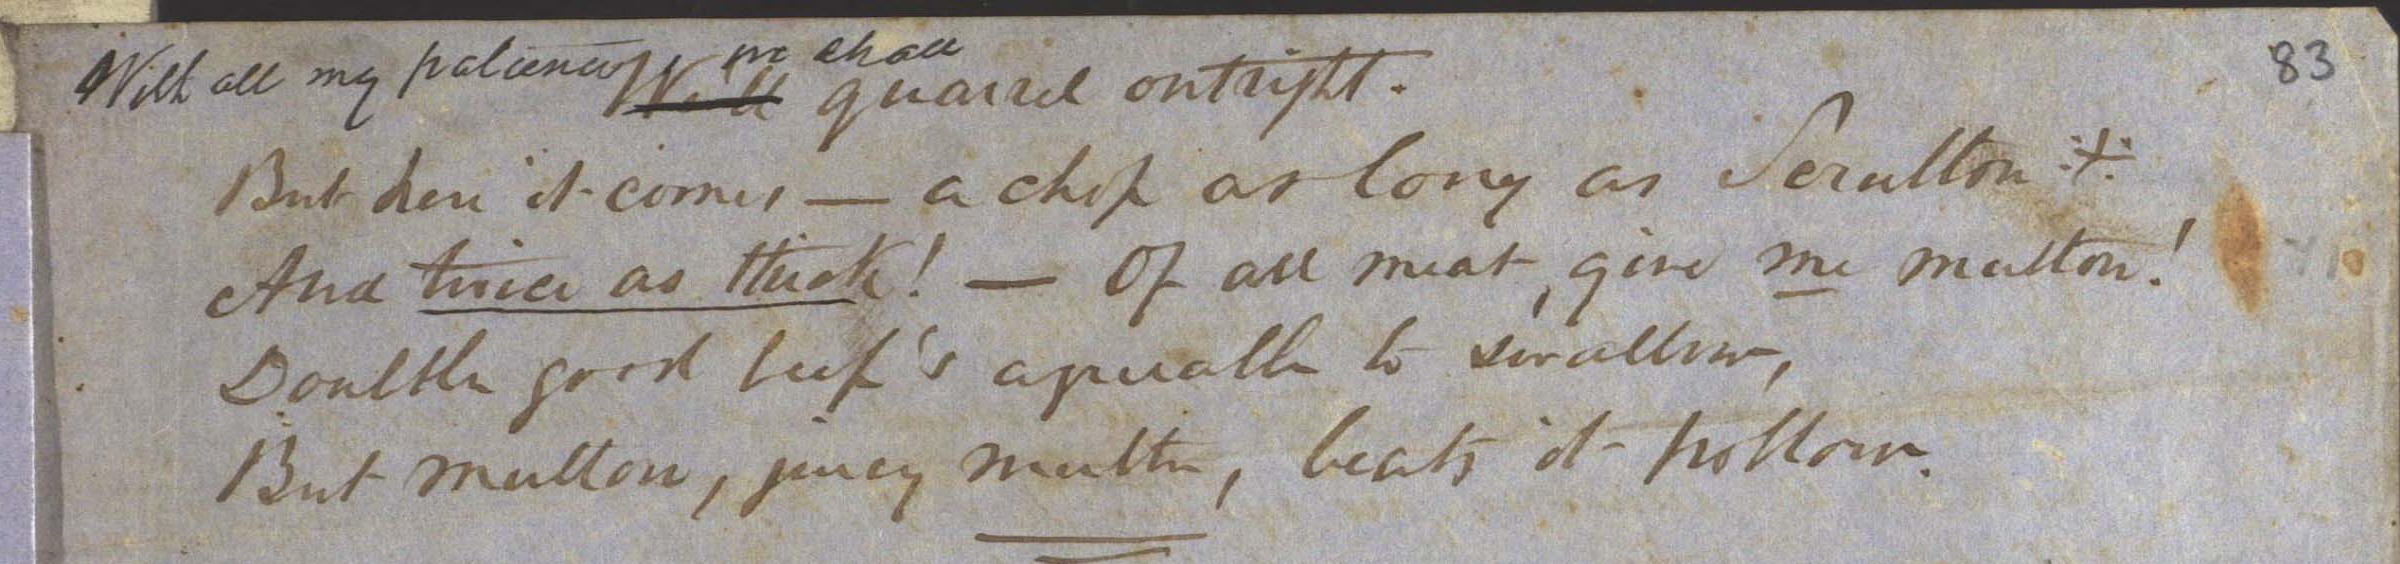 83
With all my patience, we shall quarrel outright.
But here it comes — a chop as long as Scrutton
And twice as thick! — Of all meat, give me mutton!
Doubtless good beef's agreeable to swallow,
But mutton, juicy mutton, beats it hollow.